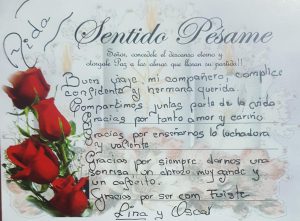 Sentido Pésame
Señor, concédele el descanso eterno y
otórgale Paz a las almas que lloran su partida!!
Buen viaje, mi compañera, complice
confidente y hermana querida.
Compartimos juntas parte de la vida
Gracias por tanto amor y cariño
Gracias por enseñarnos lo luchadora
y valiente
Gracias por siempre darnos una
sonrisa, un abrazo muy grande y
un cafecito.
Gracias por ser com Fuiste
Lina y Oscar